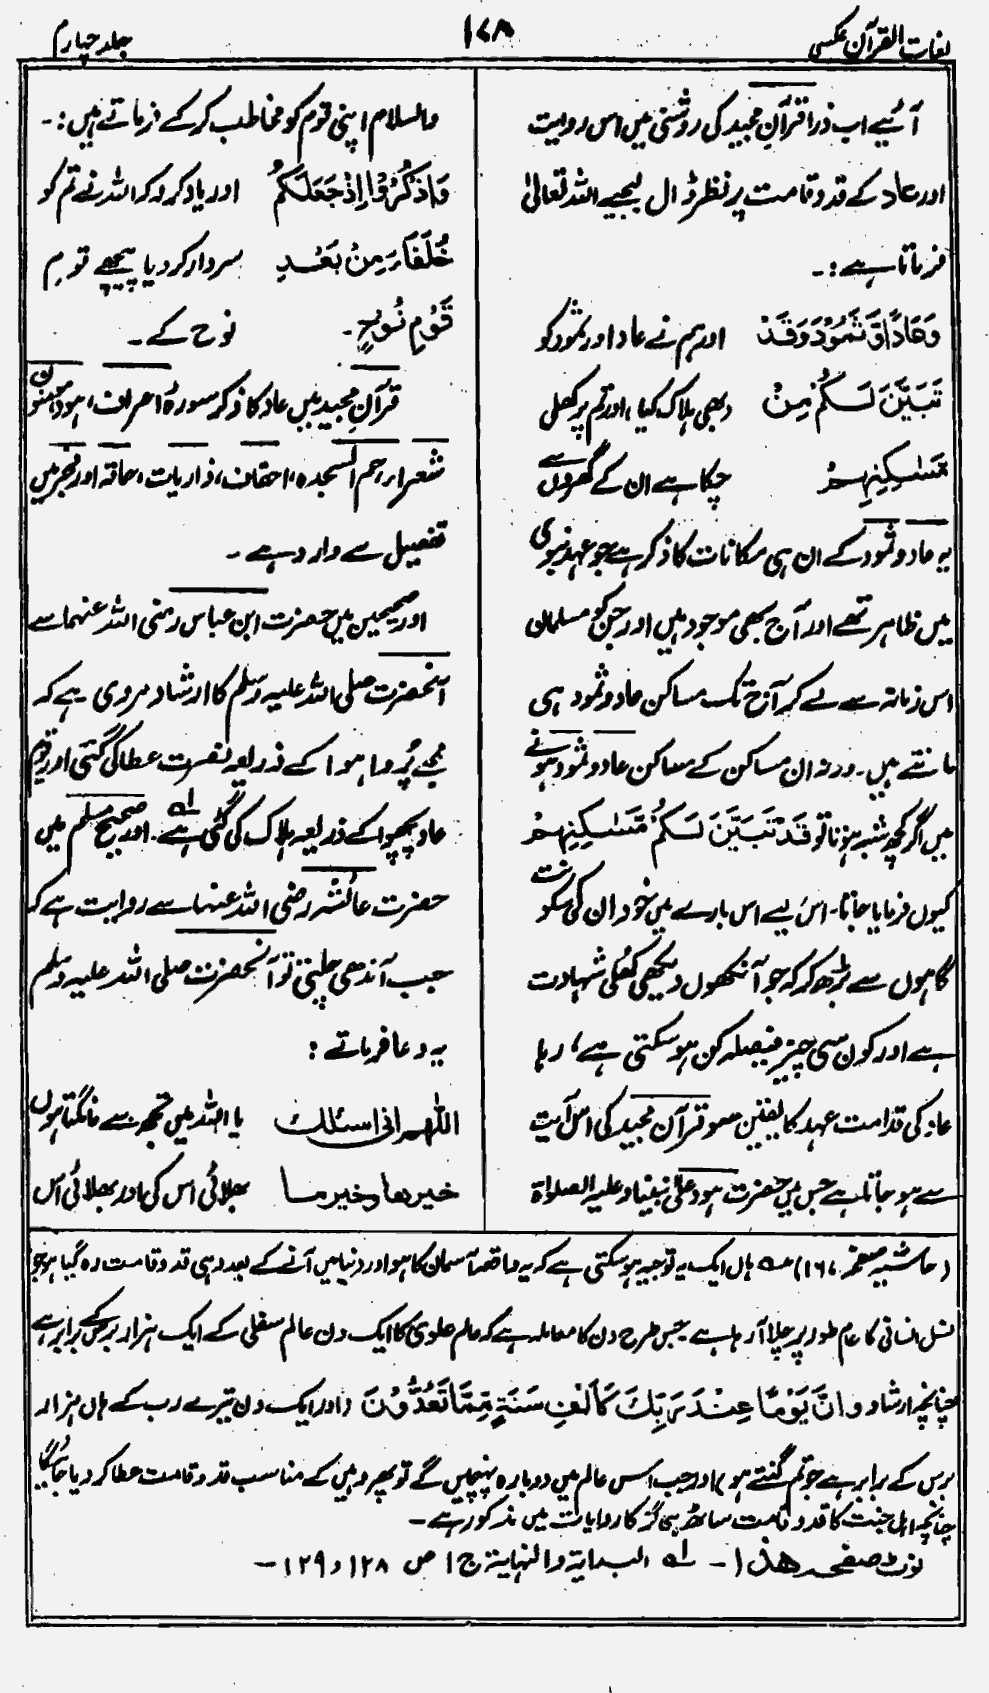 لغات القرآن عکسی
۱۶۸
جلد چہارم
آئیے اب ذرا قرآنِ مجید کی روشنی میں اس روایت
اور عاد کے قد و قامت پر نظر ڈال لیجیے اللہ تعالیٰ
فرماتا ہے:۔
وَعَادًا وَّثَمُوْدَ وَقَدْ اور ہم نے عاد اور ثمود کو
تَبَيَّنَ لَكُمْ مِنْ (بھی ہلاک کیا) اور تم پر کھل
مَسٰكِنِهِمْ چکا ہے ان کے گھروں سے
یہ عاد و ثمود کے ان ہی مکانات کا ذکر ہے جو عہد نبوی
میں ظاہر تھے اور آج بھی موجود ہیں اور جن کو مسلمان
اس زمانہ سے لے کر آج تک مساکن عاد و ثمود ہی
مانتے ہیں۔ ورنہ ان مساکن کے مساکن عاد و ثمود ہونے
میں اگر کچھ شبہ ہوتا تو قَدْ تَبَيَّنَ لَكُمْ مَّسٰكِنِهِمْ
کیوں فرمایا جاتا۔ اس لیے اس بارے میں خود ان کی سکونت
گاہوں سے بڑھ کر کہ جو آنکھوں دیکھی کھُلی شہادت
ہے اور کون سی چیز فیصلہ کن ہو سکتی ہے، رہا
عاد کی قدامت عہد کا یقین سو قرآن مجید کی اس آیت
سے ہو جاتا ہے جس میں حضرت ہود علیٰ نبینا و علیہ الصلاۃ
والسلام اپنی قوم کو مخاطب کر کے فرماتے ہیں:۔
وَاذْكُرُوْا اِذْ جَعَلَكُمْ اور یاد کرو کہ اللہ نے تم کو
خُلَفَآءَ مِنْ بَعْدِ سردار کر دیا پیچھے قوم
قَوْمِ نُوْحٍ۔ نوح کے۔
قرآنِ مجید میں عاد کا ذکر سورۂ اعراف، ہود، مومنون
شعراء، حم السجدہ، احقاف، ذاریات، حاقہ اور فجر میں
تفصیل سے وارد ہے۔
اور صحیحین میں حضرت ابن عباس رضی اللہ عنہما سے
آنحضرت صلی اللہ علیہ وسلم کا ارشاد مروی ہے کہ
مجھے پُروا ہوا کے ذریعہ نصرت عطا کی گئی اور قوم
عاد پچھوا کے ذریعہ ہلاک کی گئی ہے لہ اور صحیح مسلم میں
حضرت عائشہ رضی اللہ عنہا سے روایت ہے کہ
جب آندھی چلتی تو آنحضرت صلی اللہ علیہ وسلم
یہ دعا فرماتے:
اللھم انی اسئلک یا اللہ میں تجھ سے مانگتا ہوں
خیرھا وخیر ما بھلائی اس کی اور بھلائی اس
(حاشیہ صفحہ ۱۶۷) ہاں ایک یہ توجیہ ہو سکتی ہے کہ یہ واقعہ آسمان کا ہو اور دنیا میں آنے کے بعد وہی قد و قامت رہ گیا ہو جو
نسل انسانی کا عام طور پر چلا آ رہا ہے۔ جس طرح دن کا معاملہ ہے کہ عالم علوی کا ایک دن عالم سفلی کے ایک ہزار برس کے برابر ہے
چنانچہ ارشاد وَاِنَّ يَوْمًا عِنْدَ رَبِّكَ كَاَلْفِ سَنَةٍ مِّمَّا تَعُدُّوْنَ (اور ایک دن تیرے رب کے ہاں ہزار
برس کے برابر ہے جو تم گنتے ہو) اور جب اس عالم میں دوبارہ پہنچیں گے تو پھر وہیں کے مناسب قد و قامت عطا کر دیا جائیگا
چنانچہ اہل جنت کا قد و قامت ساٹھ ہی گز کا روایات میں مذکور ہے۔
نوٹ صفحہ ھذا۔ لہ البدایۃ والنہایۃ ج ۱ ص ۱۲۸ و ۱۲۹۔